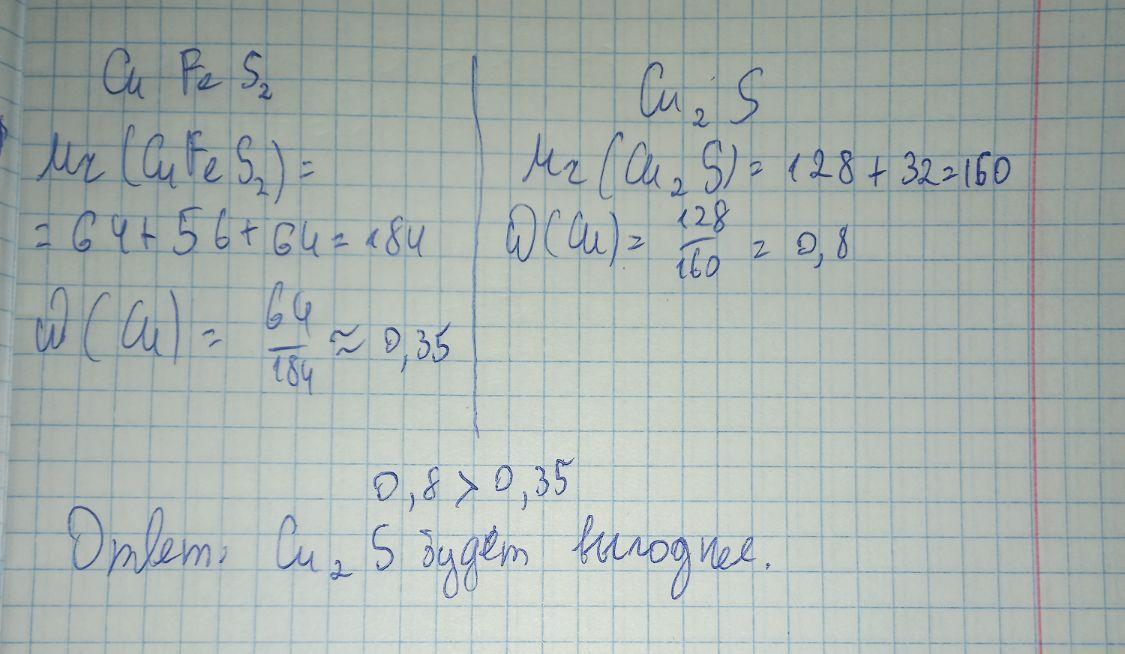 Cu Fe S₂
Mr (CuFeS₂) =
= 64 + 56 + 64 = 184
ω(Cu) = 64/184 ≈ 0,35
Cu₂S
Mr (Cu₂S) = 128 + 32 = 160
ω(Cu) = 128/160 = 0,8
0,8 > 0,35
Ответ: Cu₂S будет выгоднее.